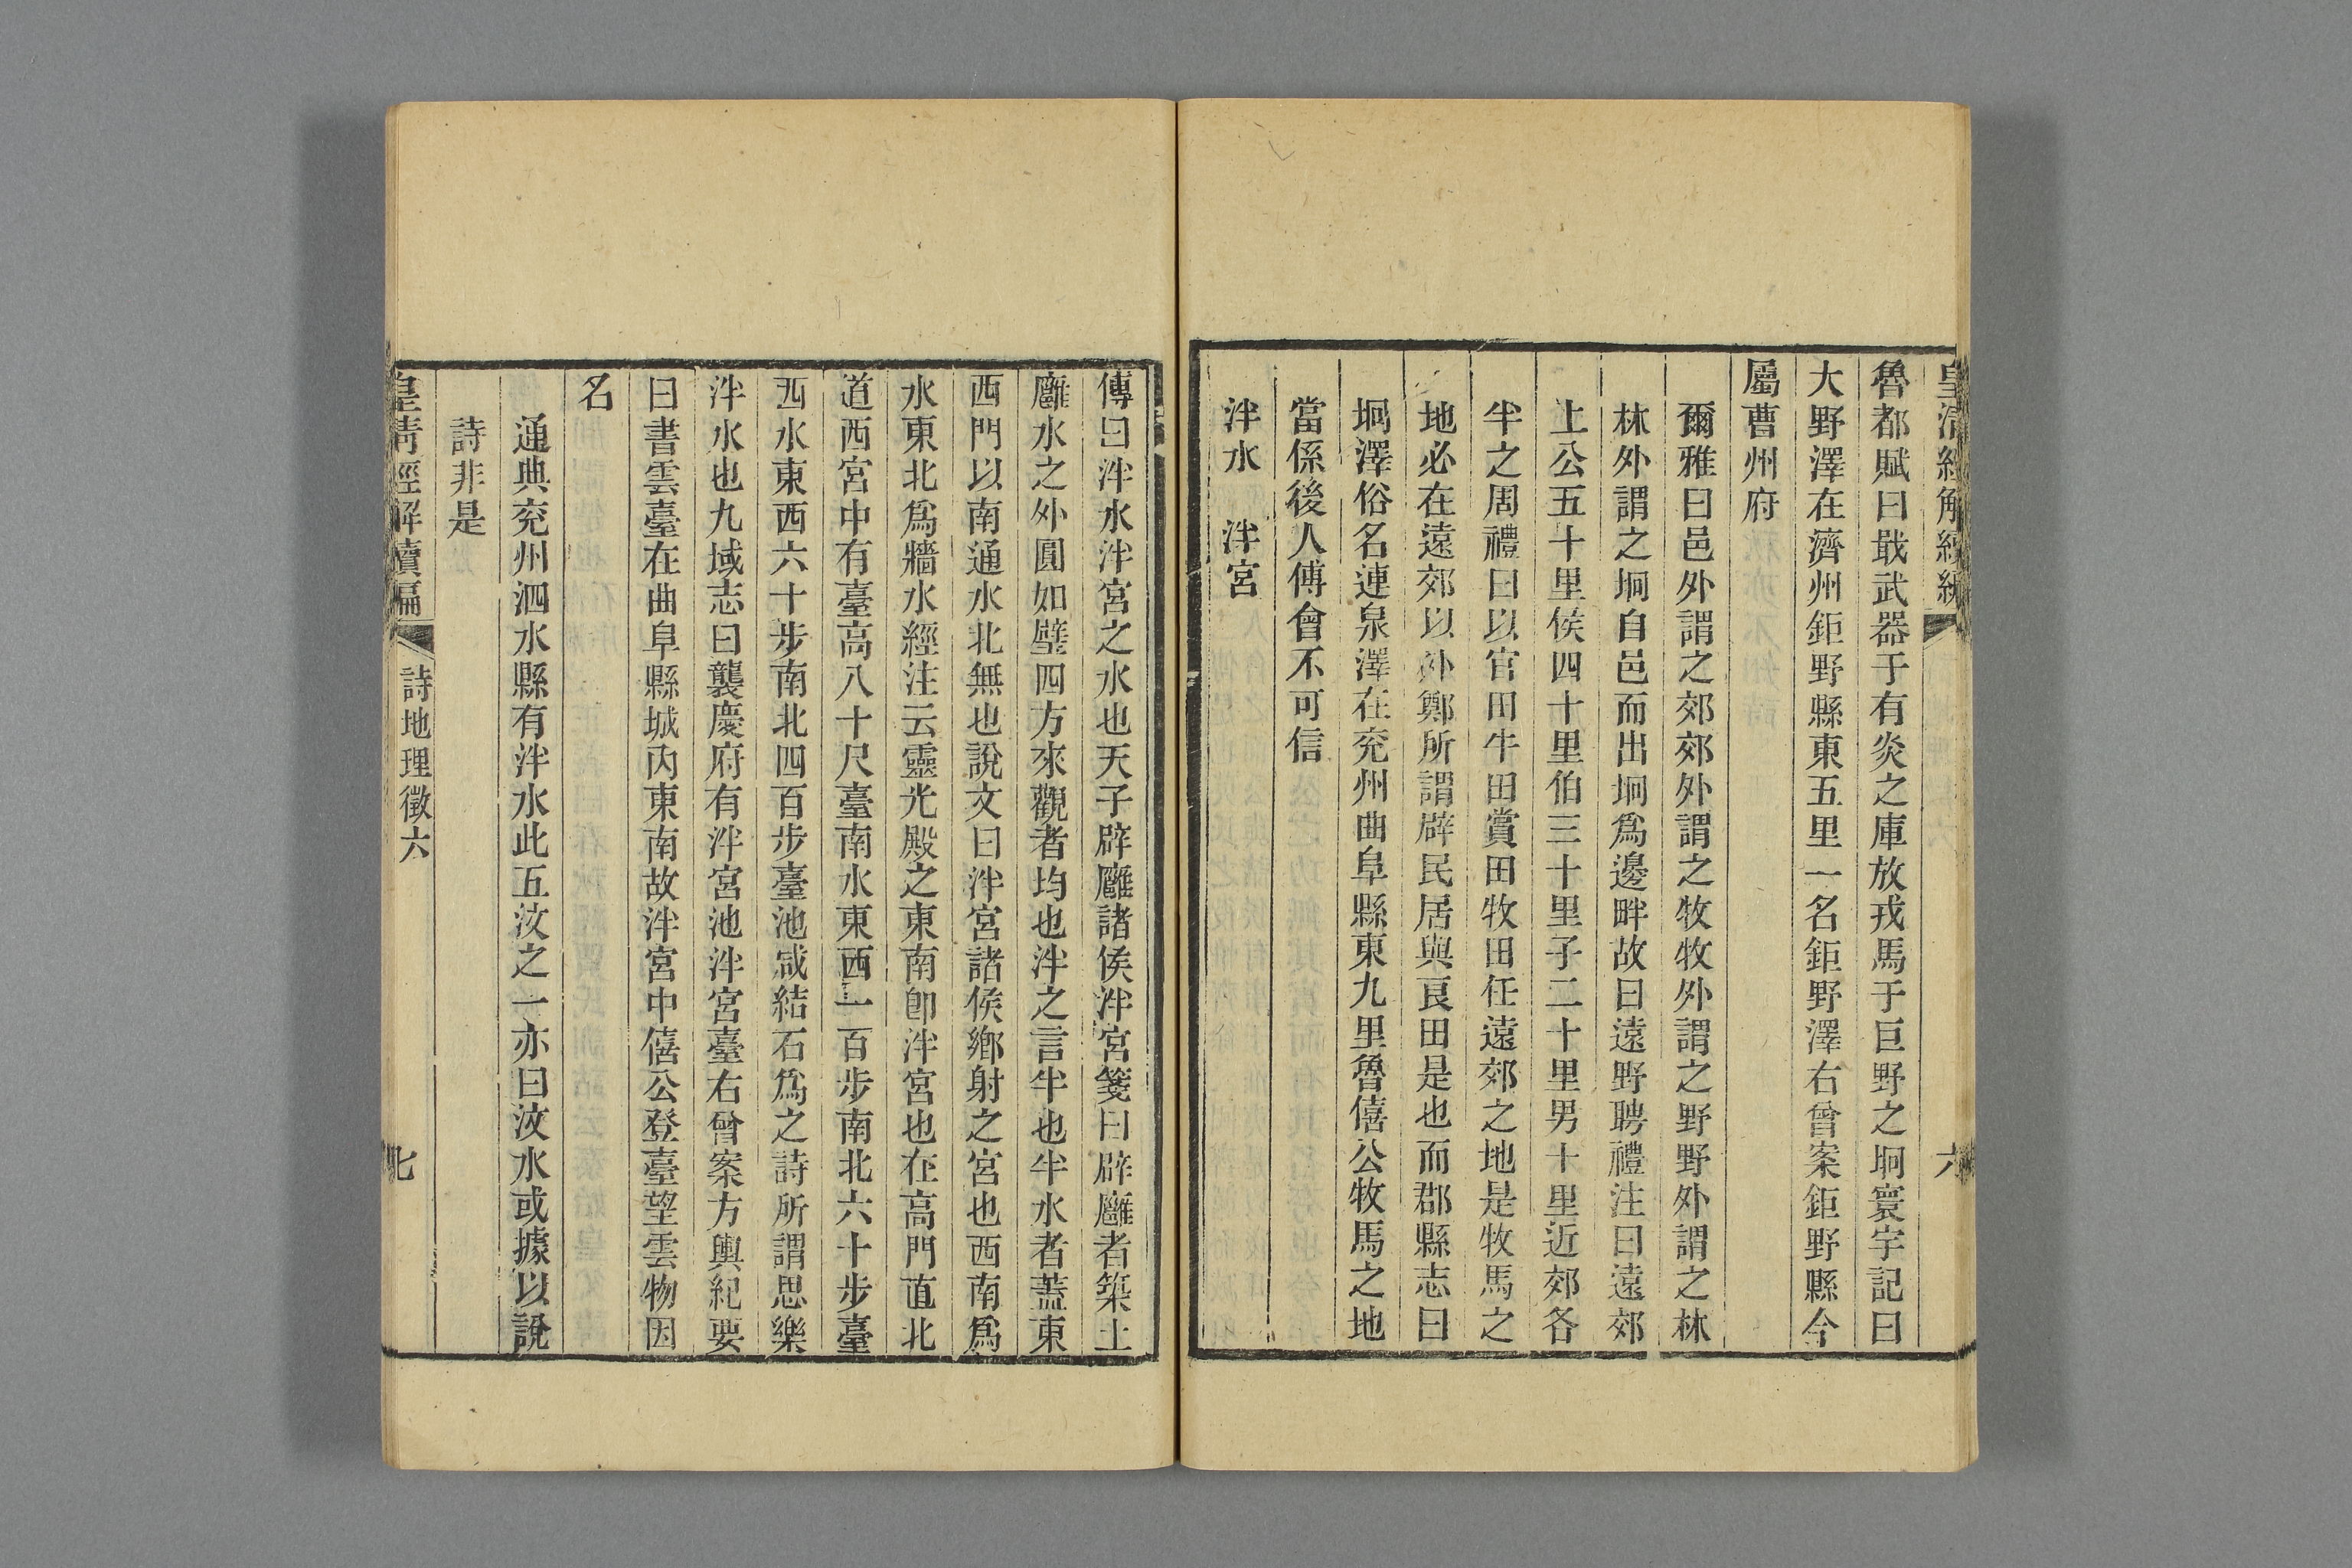 皇清經解續編
六
魯都賦曰戢武器于有炎之庫放戎馬于巨野之坰寰宇記曰
大野澤在濟州鉅野縣東五里一名鉅野澤右曾案鉅野縣今
屬曹州府
爾雅曰邑外謂之郊郊外謂之牧牧外謂之野野外謂之林
林外謂之坰自邑而出坰爲邊畔故曰遠野聘禮注曰遠郊
上公五十里侯四十里伯三十里子二十里男十里近郊各
半之周禮曰以官田牛田賞田牧田任遠郊之地是牧馬之
地必在遠郊以外鄭所謂辟民居與良田是也而郡縣志曰
坰澤俗名連泉澤在兗州曲阜縣東九里魯僖公牧馬之地
當係後人傅會不可信
泮水 泮宮
傳曰泮水泮宮之水也天子辟廱諸侯泮宮箋曰辟廱者築土
廱水之外圓如璧四方來觀者均也泮之言半也半水者蓋東
西門以南通水北無也說文曰泮宮諸侯鄉射之宮也西南爲
水東北爲牆水經注云靈光殿之東南卽泮宮也在高門直北
道西宮中有臺高八十尺臺南水東西一百步南北六十步臺
西水東西六十步南北四百步臺池咸結石爲之詩所謂思樂
泮水也九域志曰襲慶府有泮宮池泮宮臺右曾案方輿紀要
曰書雲臺在曲阜縣城內東南故泮宮中僖公登臺望雲物因
名
通典兗州泗水縣有泮水此五汶之一亦曰汶水或據以說
詩非是
皇清經解續編
詩地理徵六
七